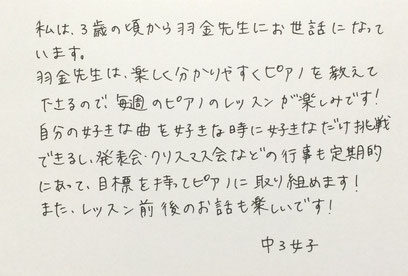 私は、3歳の頃から羽金先生にお世話になって
います。
羽金先生は、楽しく分かりやすくピアノを教えて
下さるので、毎週のピアノのレッスンが楽しみです!
自分の好きな曲を好きな時に好きなだけ挑戦
できるし、発表会・クリスマス会などの行事も定期的
にあって、目標を持ってピアノに取り組めます!
また、レッスン前後のお話も楽しいです!
中3女子